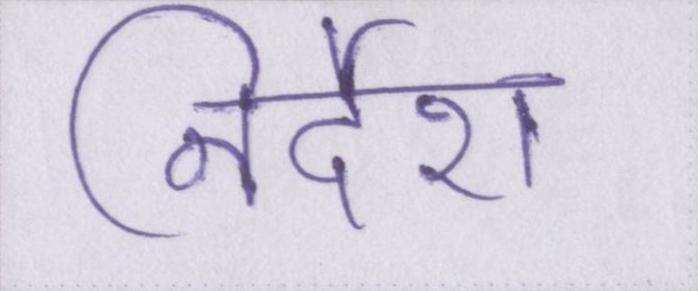 निर्देश